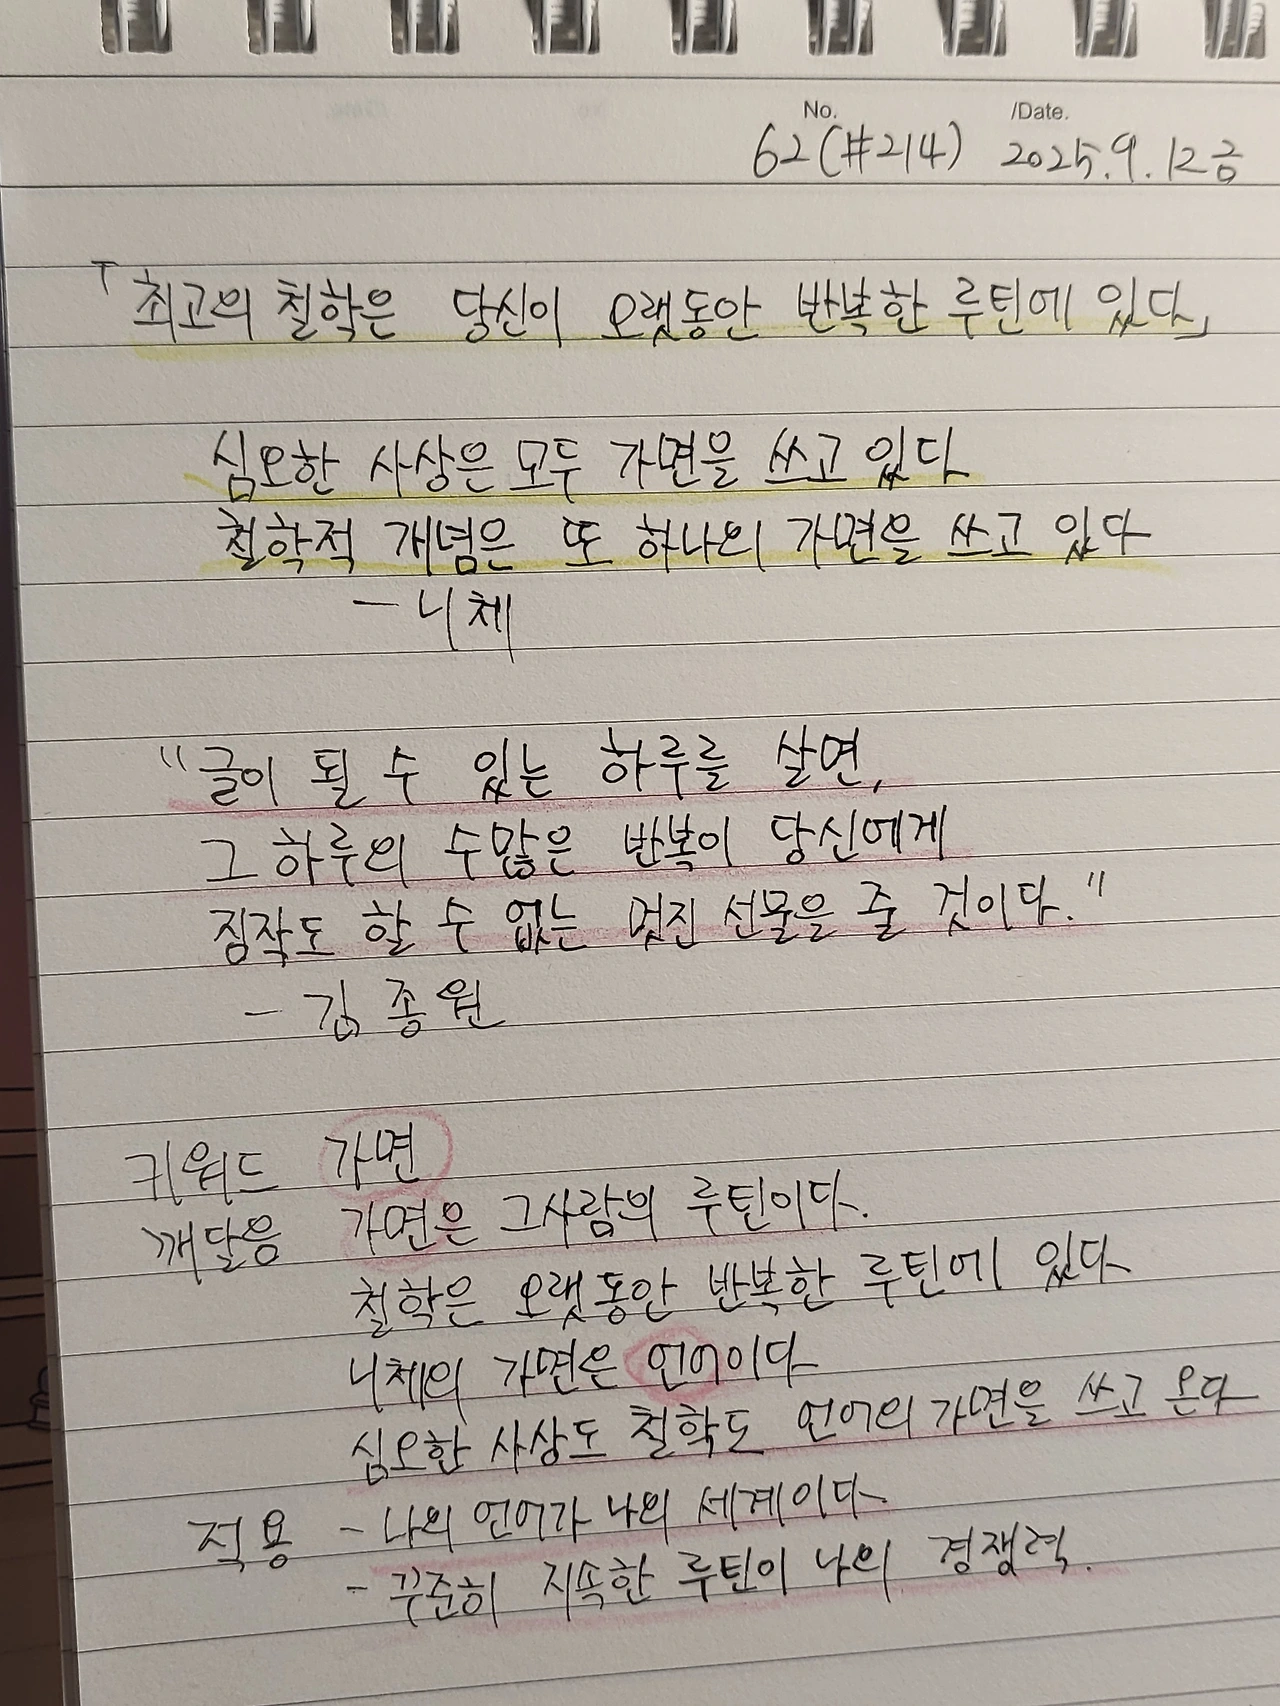 No. /Date.
62(#214) 2025.9.12금
「최고의 철학은 당신이 오랫동안 반복한 루틴에 있다」
심오한 사상은 모두 가면을 쓰고 있다
철학적 개념은 또 하나의 가면을 쓰고 있다
- 니체
"글이 될 수 있는 하루를 살면,
그 하루의 수많은 반복이 당신에게
짐작도 할 수 없는 멋진 선물을 줄 것이다."
- 김종원
키워드 가면
깨달음 가면은 그사람의 루틴이다.
철학은 오랫동안 반복한 루틴에 있다
니체의 가면은 언어이다
심오한 사상도 철학도 언어의 가면을 쓰고 온다
적용 - 나의 언어가 나의 세계이다
- 꾸준히 지속한 루틴이 나의 경쟁력.